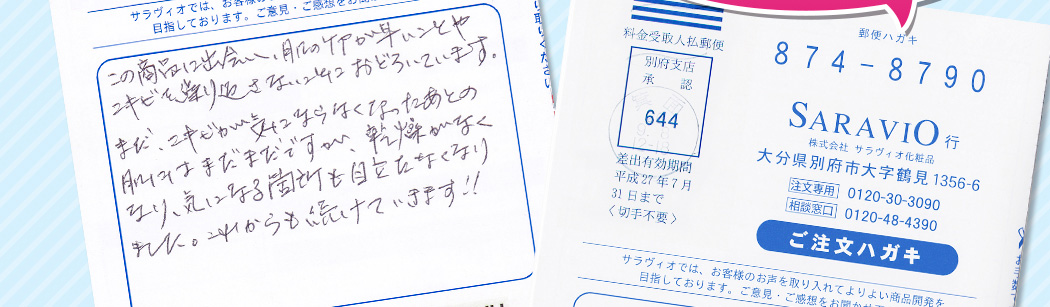 サラヴィオでは、お客様の
目指しております。ご意見・ご感想をお聞か
この商品に出会い、肌のケアが早いことや
ニキビを繰り返さないことにおどろいています。
まだ、ニキビが気にならなくなったあとの
肌にはまだまだですが、乾燥がなく
なり、気になる箇所も目立たなくなり
ました。これからも続けていきます!!
り取りください
料金受取人払郵便
別府支店
承認
644
差出有効期間
平成27年7月
31日まで
〈切手不要〉
郵便ハガキ
874-8790
SARAVIO 行
株式会社 サラヴィオ化粧品
大分県別府市大字鶴見1356-6
注文専用 0120-30-3090
相談窓口 0120-48-4390
ご注文ハガキ
サラヴィオでは、お客様のお声を取り入れてよりよい商品開発を
目指しております。ご意見・ご感想をお聞かせ
お手数